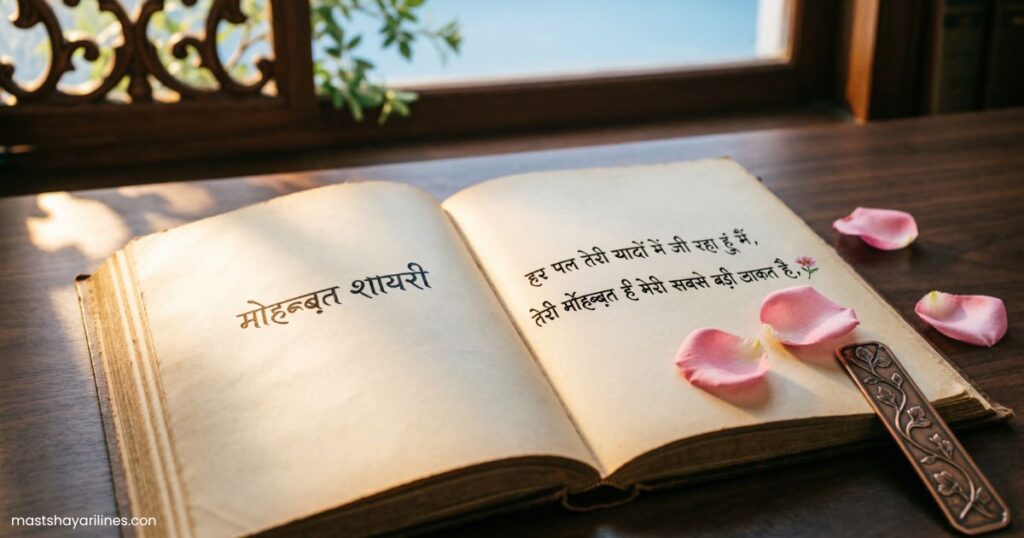 मोहब्बत शायरी
हर पल तेरी यादों में जी रहा हुं मैं,
तेरी मोंहब्बत ही मेरी सबसे बड़ी ताकत है,
mastshayarilines.com